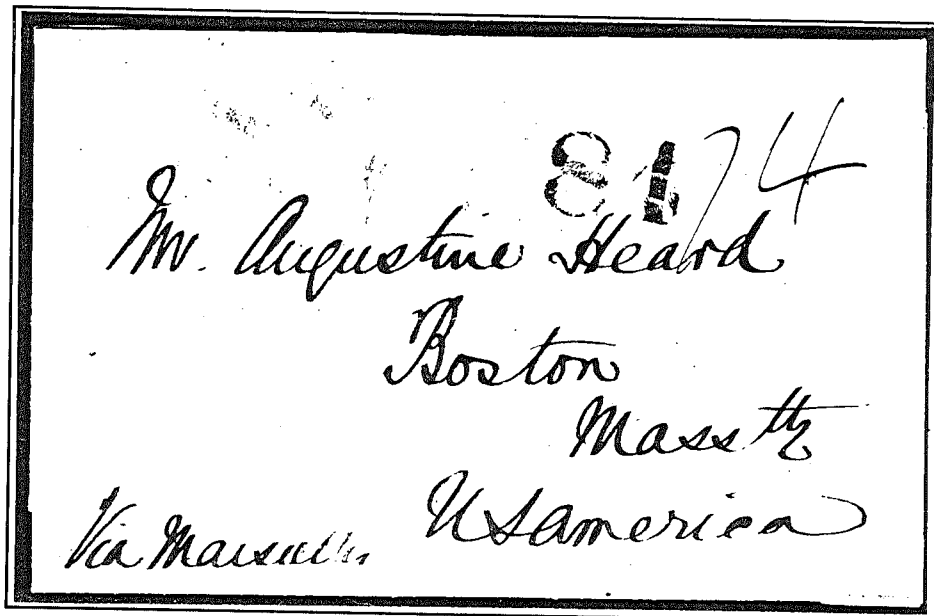 81 74
Mr. Augustine Heard
Boston
Mass tts
US america
Via Marseilles